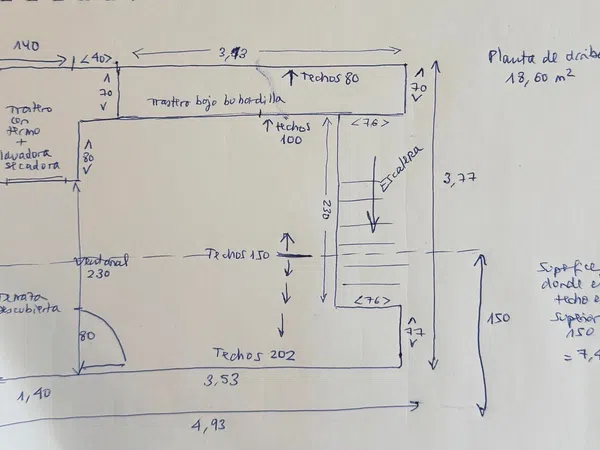 140
<40>
3,93
Planta de
18,60 m²
70
↑ Techos 80
70
Trastero bajo bohardilla
Trastero
con
termo
+
lavadora
secadora
80
↑ techos
100
<76>
Escalera
230
3,77
Ventanal
230
Techos 150
Terraza
descubierta
80
<76>
77
150
Superficie
donde e
techo e
superior
150
= 7,4
Techos 202
1,40
3,53
4,93